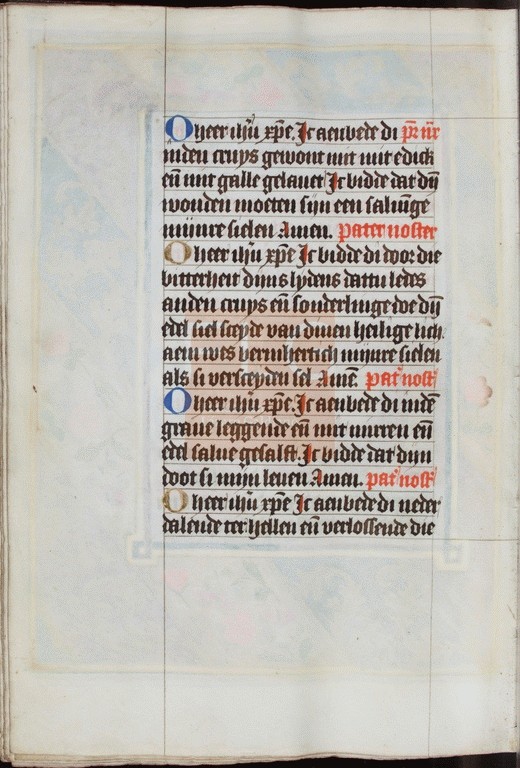 O heer ihu xpe. Ic aenbede di pr nr
inden cruys gewont mit mit edick
en mit galle gelauet Ic bidde dat dyn
wonden moeten sijn een saluinge
mijnre sielen Amen. Pater noster
O heer ihu xpe Ic bidde di door die
bitterheit dijns lydens dattu ledes
anden cruys en sonderlinge doe dijn
edel siel sceyde van dinen heilige lich
aem wes bermhertich mijnre sielen
als si versceyden sel Amen. pat nost
O heer ihu xpe. Ic aenbede di inde
graue leggende en mit mirren en
edel salue gesalft. Ic bidde dat dijn
doot si mijn leuen Amen. pat nost
O heer ihu xpe Ic aenbede di neder
dalende ter hellen en verlossende die